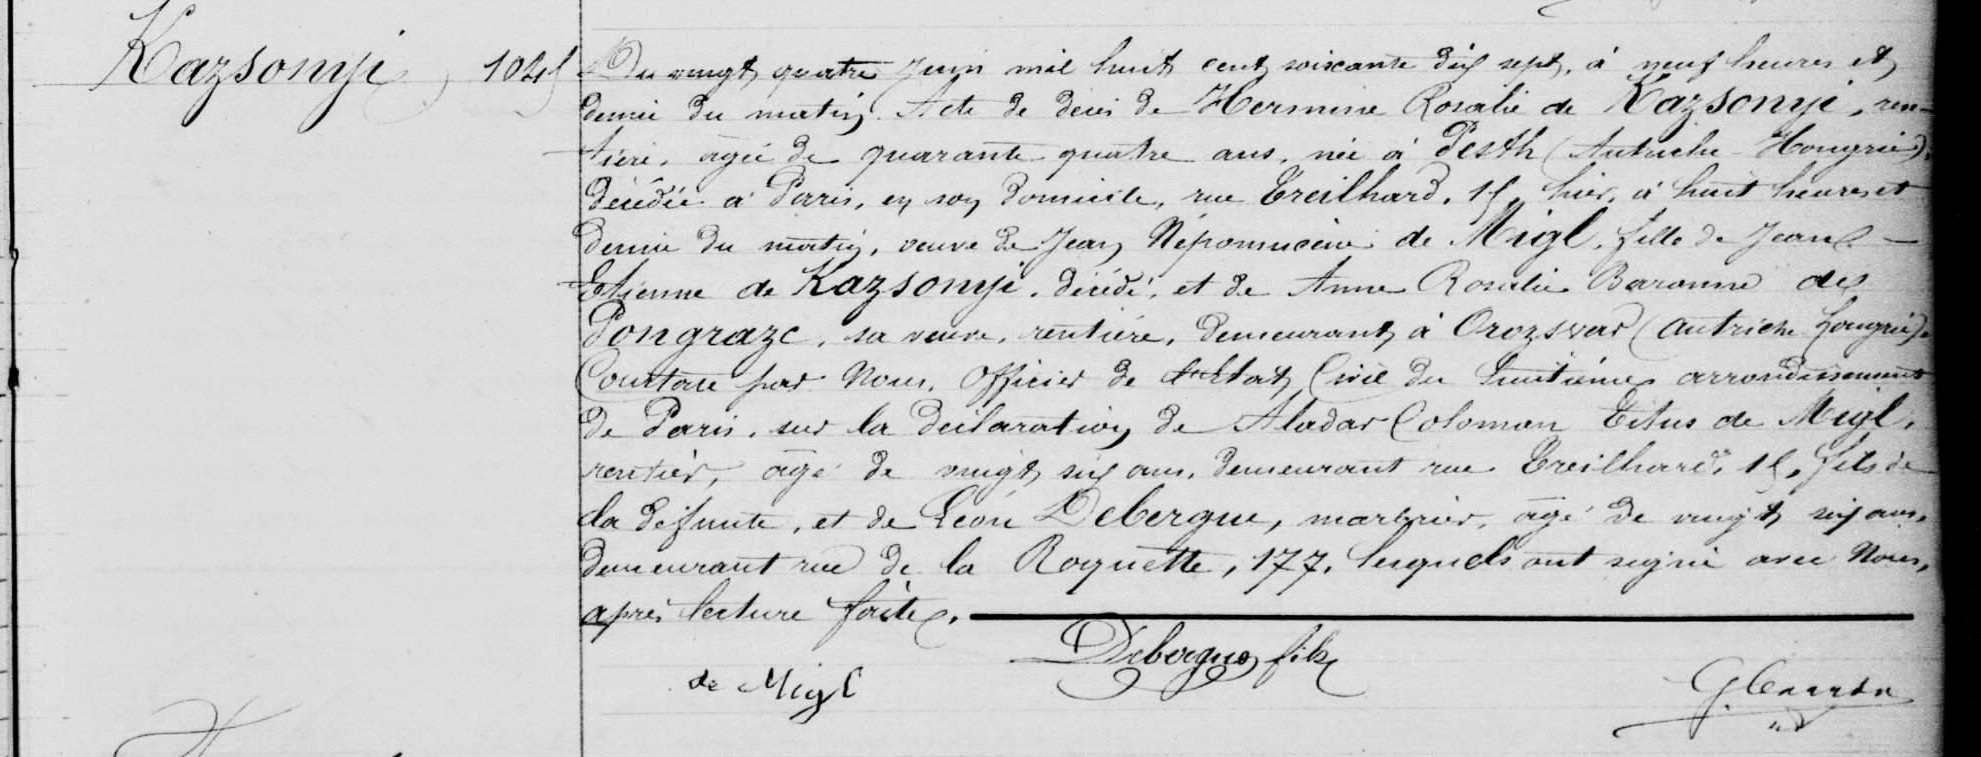 Kazsonyi 1045 Du vingt quatre Juin mil huit cent soixante dix sept, à neuf heures et
demie du matin. Acte de décès de Hermine Rosalie de Kazsonyi, ren-
tière, âgée de quarante quatre ans, née à Pesth (Autriche-Hongrie),
décédée à Paris, en son domicile, rue Treilhard, 15, hier, à huit heures et
demie du matin, veuve de Jean Népomucène de Migl, fille de Jean
Etienne de Kazsonyi, décédé, et de Anne Rosalie Baronne de
Pongrazc, sa veuve, rentière, demeurant à Orozsvar (Autriche Hongrie).
Constaté par Nous, Officier de l'Etat Civil du huitième arrondissement
de Paris, sur la déclaration de Aladar Coloman Titus de Migl,
rentier, âgé de vingt six ans, demeurant rue Treilhard, 15, fils de
la défunte, et de Léon Debergue, marbrier, âgé de vingt six ans,
demeurant rue de la Roquette, 177, lesquels ont signé avec Nous,
après lecture faite.
de Migl Debergue fils